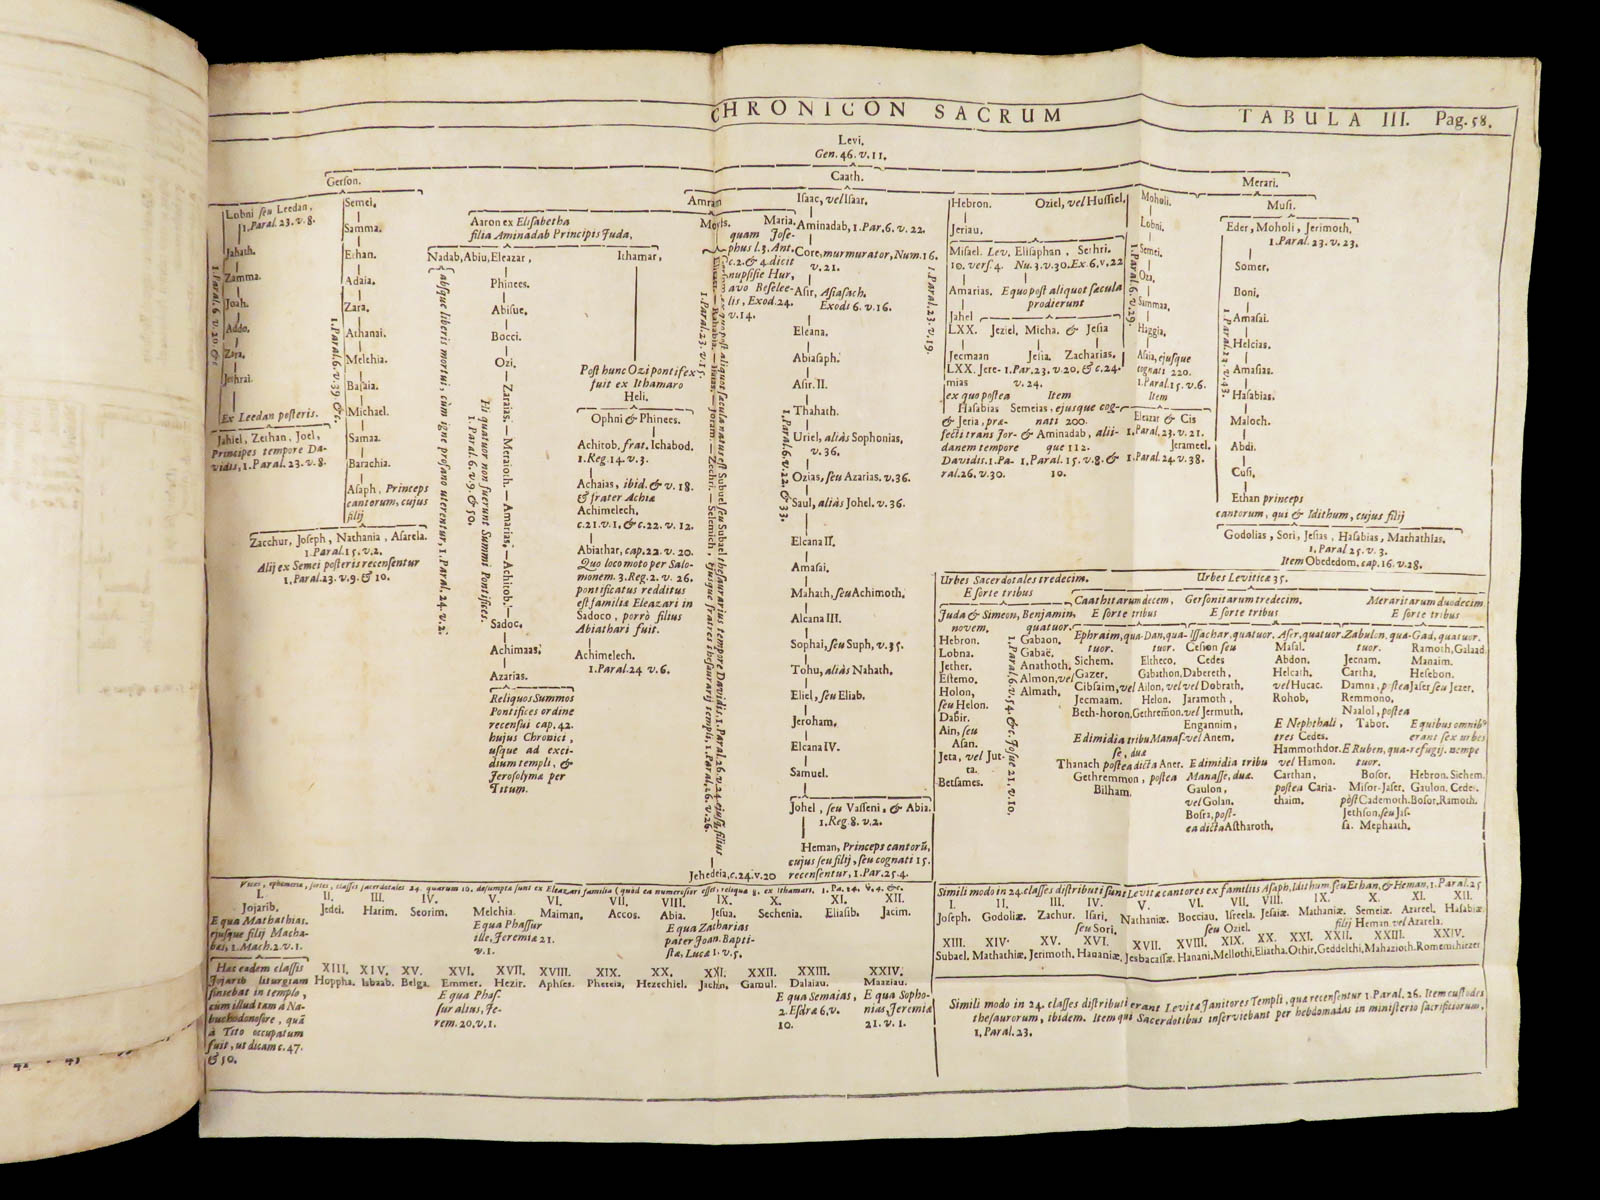 CHRONICON SACRUM
TABULA III. Pag. 58.
Levi.
Gen. 46. v. 11.
Gerson.
Caath.
Merari.
Lobni seu Leedan,
1. Paral. 23. v. 8.
Jahath.
Zamma.
Joah.
Addo.
Zara.
Jethrai.
Ex Leedan posteris.
Jahiel, Zethan, Joel,
Principes tempore Da-
vidis, 1. Paral. 23. v. 8.
Semei.
Samma.
Ethan.
Adaia.
Zara.
Athanai.
Melchia.
Basaia.
Michael.
Samaa.
Barachia.
Asaph, Princeps
cantorum, cujus
filij
1. Paral. 6. v. 39. &c.
Zacchur, Joseph, Nathania, Asarela.
1. Paral. 15. v. 2.
Alij ex Semei posteris recensentur
1. Paral. 23. v. 9. & 10.
Amram
Aaron ex Elisabetha
filia Aminadab Principis Juda.
Nadab, Abiu, Eleazar,
Ithamar,
absque liberis mortui, cùm igne profano uterentur, 1. Paral. 24. v. 2.
Phinees.
Abisue.
Bocci.
Ozi.
Zaraias. — Meraioth. — Amarias. — Achitob. —
Hi quatuor non fuerunt Summi Pontifices.
1. Paral. 6. v. 9. & 50.
Sadoc.
Achimaas.
Azarias.
Reliquos Summos
Pontifices ordine
recensui cap. 42.
hujus Chronici,
usque ad exci-
dium templi, &
Jerosolymæ per
Titum.
Post hunc Ozi pontifex
fuit ex Ithamaro
Heli.
Ophni & Phinees.
Achitob, frat. Ichabod.
1. Reg. 14. v. 3.
Achaias, ibid. & v. 18.
& frater Achiæ
Achimelech,
c. 21. v. 1, & c. 22. v. 12.
Abiathar, cap. 22. v. 20.
Quo loco moto per Salo-
monem. 3. Reg. 2. v. 26.
pontificatus redditus
est familiæ Eleazari in
Sadoco, porrò filius
Abiathari fuit.
Achimelech.
1. Paral. 24 v. 6.
Maria,
quam Jose-
phus l. 3. Ant.
c. 2. & 4. dicit
nupsisse Hur,
avo Beselee-
lis, Exod. 24.
v. 14.
1. Paral. 23. v. 15.
Jehedeia, c. 24. v. 20
Isaac, vel Isaar.
Aminadab, 1. Par. 6. v. 22.
Core, murmurator, Num. 16.
v. 21.
Asir, Asiasach.
Exodi 6. v. 16.
Elcana.
Abiasaph.
Asir. II.
Thahath.
Uriel, aliàs Sophonias,
v. 36.
Ozias, seu Azarias. v. 36.
Saul, aliàs Johel. v. 36.
Elcana II.
Amasai.
Mahath, seu Achimoth.
Alcana III.
Sophai, seu Suph, v. 35.
Tohu, aliàs Nahath.
Eliel, seu Eliab.
Jeroham.
Elcana IV.
Samuel.
Johel, seu Vasseni, & Abia.
1. Reg. 8. v. 2.
Heman, Princeps cantorū,
cujus seu filij, seu cognati 15.
recensentur, 1. Par. 25. 4.
1. Paral. 6. v. 22. & 33.
1. Paral. 23. v. 19.
Hebron.
Jeriau.
Oziel, vel Hussiel,
Misael. Lev. Elisaphan, Sethri.
10. vers. 4. Nu. 3. v. 30. Ex. 6. v. 22
Amarias. E quo post aliquot sæcula
prodierunt
Jahel
LXX. Jeziel, Micha. & Jesia
Jecmaan Jesia. Zacharias.
LXX. Jere- 1. Par. 23. v. 20. & c. 24.
mias v. 24.
ex quo postea Item
Hasabias Semeias, ejusque cog-
& Jeria, præ- nati 200.
fecti trans Jor- & Aminadab, alii-
danem tempore que 112.
Davidis. 1. Pa- 1. Paral. 15. v. 8. &
ral. 26. v. 30. 10.
Moholi.
Lobni.
Semei.
Oza.
Sammaa.
Haggia.
Asaia, ejusque
cognati 220.
1. Paral. 15. v. 6.
Item
Eleazar & Cis
1. Paral. 23. v. 21.
Jerameel.
1. Paral. 24. v. 38.
1. Paral. 6. v. 29.
Musi.
Eder, Moholi, Jerimoth.
1. Paral. 23. v. 23.
Somer.
Boni.
Amasai.
Helcias.
Amasias.
Hasabias.
Maloch.
Abdi.
Cusi.
Ethan princeps
cantorum, qui & Idithum, cujus filij
Godolias, Sori, Jesias, Hasabias, Mathathias.
1. Paral 25. v. 3.
Item Obededom, cap. 16. v. 28.
Urbes Sacerdotales tredecim.
E sorte tribus
Juda & Simeon, Benjamin,
novem. quatuor.
Hebron.
Lobna.
Jether.
Estemo.
Holon,
seu Helon.
Dabir.
Ain, seu
Asan.
Jeta, vel Jut-
ta.
Betsames.
Gabaon.
Gabaë,
Anathoth,
Almon, vel
Almath.
1. Paral. 6. v. 54. &c. Josue 21. v. 10.
Urbes Leviticæ 35.
Caathitarum decem,
E sorte tribus
Ephraim, qua-
tuor.
Sichem.
Gazer.
Cibsaim, vel
Jecmaam.
Beth-horon.
Dan, qua-
tuor.
Eltheco,
Gabathon,
Ailon, vel
Helon.
Gethremon.
E dimidia tribu Manas-
se, duæ
Thanach postea dicta Aner.
Gethremmon, postea
Bilham.
Gersonitarum tredecim.
E sorte tribus
Issachar, quatuor.
Cesion seu
Cedes
Dabereth,
vel Dobrath.
Jaramoth,
vel Jermuth.
Engannim,
vel Anem.
E dimidia tribu
Manasse, duæ.
Gaulon,
vel Golan.
Bosra, post-
ea dicta Astharoth.
Aser, quatuor.
Masal.
Abdon.
Helcath,
vel Hucac.
Rohob,
E Nephthali,
tres Cedes.
Hammothdor.
vel Hamon.
Carthan,
postea Caria-
thaim.
Meraritarum duodecim
E sorte tribus
Zabulon, qua-
tuor.
Jecnam.
Cartha,
Damna, postea
Remmono,
Naalol, postea
Tabor.
E Ruben, qua-
tuor.
Bosor,
Misor-Jaser.
pòst Cademoth.
Jethson, seu Jas-
sa. Mephaath.
Gad, quatuor.
Ramoth, Galaad.
Manaim.
Hesebon.
Jaser seu Jezer.
E quibus omnib9
erant sex urbes
refugij. nempe
Hebron. Sichem.
Gaulon. Cedes.
Bosor. Ramoth.
Vices, ephemeriæ, sortes, classes sacerdotales 24. quarum 16. desumptæ sunt ex Eleazari familia (quòd ea numerosior esset, reliquæ 8. ex Ithamari, 1. Pa. 24. v. 4. &c.
I. II. III. IV. V. VI. VII. VIII. IX. X. XI. XII.
Jojarib. Jedei. Harim. Seorim. Melchia. Maiman. Accos. Abia. Jesua. Sechenia. Eliasib. Jacim.
E qua Mathathias,
ejusque filij Macha-
bæi, 1. Mach. 2. v. 1.
E qua Phassur
ille, Jeremiæ 21.
v. 1.
E qua Zacharias
pater Joan. Bapti-
stæ, Luca 1. v. 5.
Hac eadem classis
Jojarib liturgiam
finiebat in templo,
cùm illud tam à Na-
buchodonosore, quā
à Tito occupatum
fuit, ut dicam c. 47.
& 50.
XIII. XIV. XV. XVI. XVII. XVIII. XIX. XX. XXI. XXII. XXIII. XXIV.
Hoppha. Isbaab. Belga. Emmer. Hezir. Aphses. Pheteia, Hezechiel. Jachin. Gamul. Dalaiau. Maaziau.
E qua Phas-
sur alius, Je-
rem. 20. v. 1.
E qua Semaias,
2. Esdræ 6. v.
10.
E qua Sopho-
nias, Jeremiæ
21. v. 1.
Simili modo in 24. classes distributi sunt Levitæ cantores ex familiis Asaph, Idithum seu Ethan, & Heman, 1. Paral. 25
I. II. III. IV. V. VI. VII. VIII. IX. X. XI. XII.
Joseph. Godoliæ. Zachur. Isari, Nathaniæ. Bocciau. Isreela. Jesaiæ. Mathaniæ. Semeiæ. Azareel. Hasabiæ.
seu Sori. seu Oziel. filij Heman vel Azarela.
XIII. XIV. XV. XVI. XVII. XVIII. XIX. XX. XXI. XXII. XXIII. XXIV.
Subael. Mathathiæ. Jerimoth. Hananiæ. Jesbacassæ. Hanani. Mellothi. Eliatha. Othir. Geddelthi. Mahazioth. Romemthiezer.
Simili modo in 24. classes distributi erant Levitæ Janitores Templi, quæ recensentur 1. Paral. 26. Item custodes
thesaurorum, ibidem. Item qui Sacerdotibus inserviebant per hebdomadas in ministerio sacrificiorum,
1. Paral. 23.